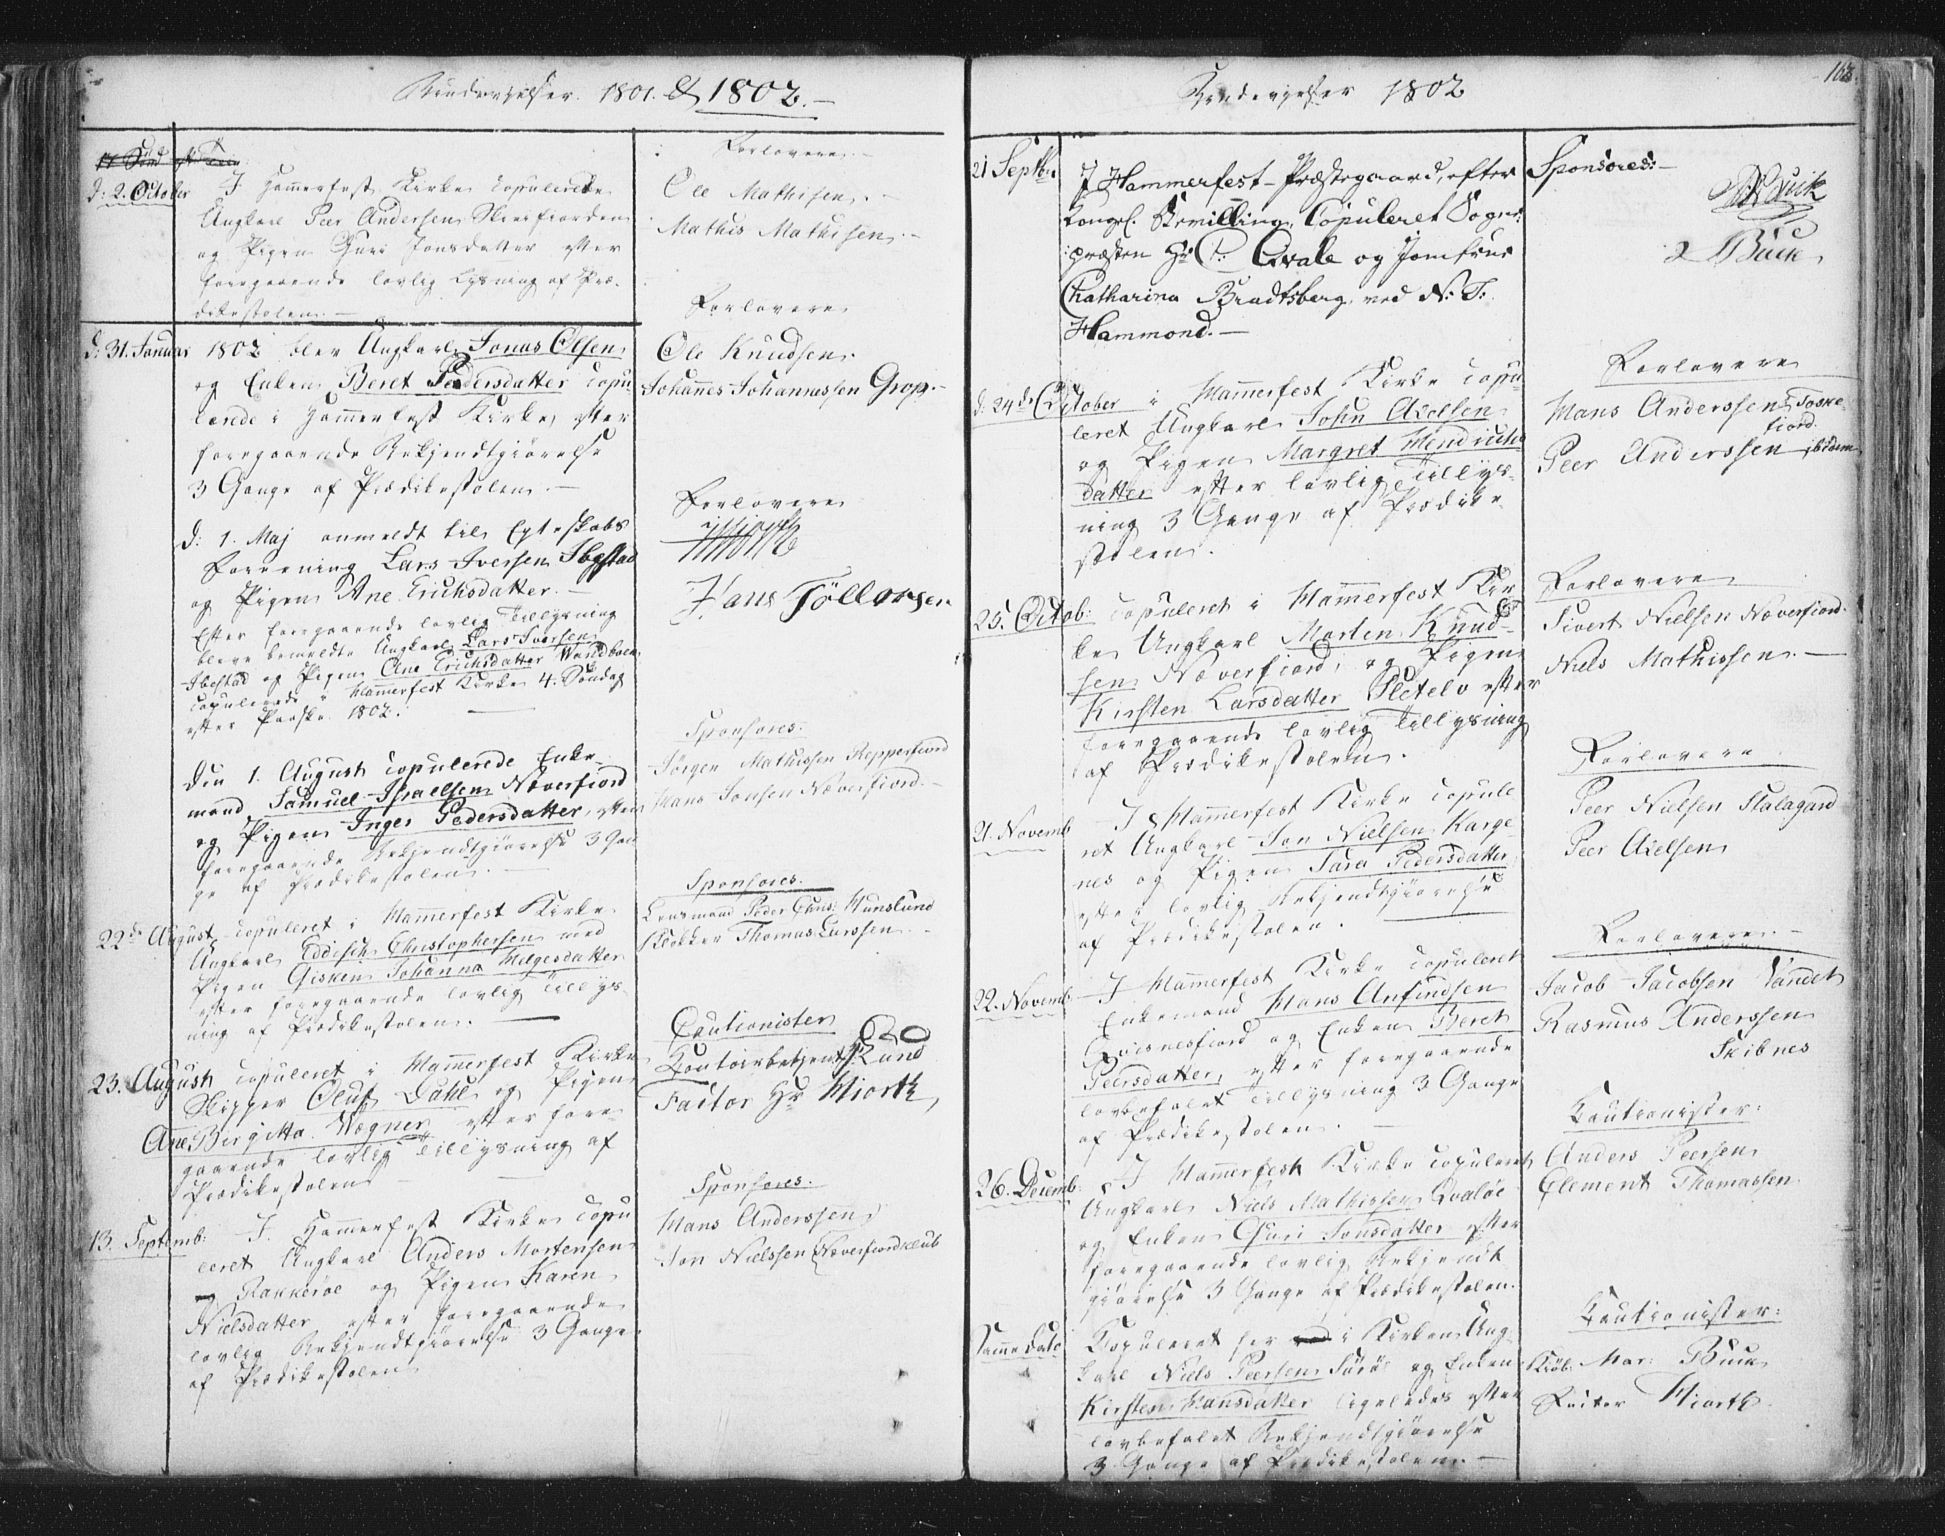 Brudevielser. 1801. & 1802.
d: 2. October
I Hammerfest Kirke copulerede
Ungkarl Peer Andersen
og Pigen Guri Jonsdatter efter
foregaaende lovlig Lysning af Præ-
dikestolen.
Forlovere
Ole Mathisen.
Mathis Mathisen.
d: 31. Januar 1802 blev Ungkarl Jonas Olsen
og Enken Beret Pedersdatter copu-
lerede i Hammerfest Kirke, efter
foregaaende Bekjendtgiørelse
3 Gange af Prædikestolen.
Forlovere
Ole Knudsen.
Johannes Johannessen Grop.
d: 1. Maj anmeldt til Egteskabs
Forening Lars Iversen Ibestad
og Pigen Ane Erichsdatter.
Efter foregaaende lovlig Tillysning
bleve bemeldte Ungkarl Lars Iversen
Ibestad og Pigen Ane Erichsdatter
copulerede i Hammerfest Kirke 4. Søndag
efter Paaske 1802.
Forlovere
Hans Töllorsen
Den 1. August copulerede Enke-
mand Samuel Israelsen Næverfiord
og Pigen Inger Pedersdatter, efter
foregaaende Bekjendtgiørelse 3 Gan-
ge af Prædikestolen.
Sponsores:
Jörgen Mathissen Repperfiord
Hans Jonsen Næverfiord.
22de August copuleret i Hammerfest Kirke
Ungkarl Eddisch Christophersen med
Pigen Gisken Johanna Helgesdatter
efter foregaaende lovlig Tillys-
ning af Prædikestolen.
Sponsores.
Lensmand Peder Chris: Hunslund
Klokker Thomas Larssen.
23. August copuleret i Hammerfest Kirke
Skipper Oluf Dahl og Pigen
Ane Birgitta Wegner efter fore-
gaaende lovlig Tillysning af
Prædikestolen
Cautionister
Contoirbetjent Lund
Factor Hr Hiorth
13. Septemb: I Hammerfest Kirke copu
leret Ungkarl Anders Mortensen
Rakkerøe og Pigen Karen
Nielsdatter efter foregaaende
lovlig Bekjendtgiørelse 3 Gange
af Prædikestolen
Sponsores.
Hans Anderssen
Jon Nielssen Næverfiordklub
Brudevielser 1802
163
21 Septbr:
I Hammerfest Præstegaard, efter
Kongel. Bevilling, Copuleret Sogne
præsten Hr C: Qvale og Jomfrue
Chatharina Bradtsberg, ved N: T:
Hammond.
Sponsores:
Buck
Buck
d: 24de October i Hammerfest Kirke copu-
leret Ungkarl John Axelsen
og Pigen Margret Hendrichs
datter efter lovlig Tillys-
ning 3 Gange af Prædike-
stolen.
Forlovere
Hans Anderssen Toske-
fiord.
Peer Anderssen ibidem
25. Octob: copuleret i Hammerfest Kir
ke Ungkarl Morten Knud-
sen Næverfiord, og Pigen
Kirsten Larsdatter Sletelv efter
foregaaende lovlig Tillysning
af Prædikestolen.
Forlovere
Sivert Nielsen Næverfiord.
Niels Mathissen.
21. Novemb I Hammerfest Kirke copule
ret Ungkarl Jon Nielsen Karge-
nes og Pigen Sara Pedersdatter
efter lovlig Bekjendtgiørelse
af Prædikestolen.
Forlovere
Peer Nielsen Stalagard
Peer Axelsen
22. Novemb. I Hammerfest Kirke copuleret
Enkemand Hans Anfindsen
Qvisnesfiord og Enken Beret
Peersdatter, efter foregaaende
lovbefalet Tillysning 3 Gange
af Prædikestolen.
Forlovere
Jacob Jacobsen Vandet
Rasmus Anderssen
Skibnes
26. Decemb: I Hammerfest Kirke copuleret
Ungkarl Niels Mathissen Qvaløe
og Enken Guri Jonsdatter efter
foregaaende lovlig Bekjendt
giørelse 3 Gange af Prædikestolen.
Cautionister:
Anders Peersen
Clement Thomassen
Samme Dato Copuleret her i Kirken Ung-
karl Niels Peersen Sørøe og Enken
Kirsten Hansdatter ligeledes efter
lovbefalet Bekjendtgiørelse
3 Gange af Prædikestolen.
Cautionister:
Kiøb: Mar: Buck
Factor Hiorth.